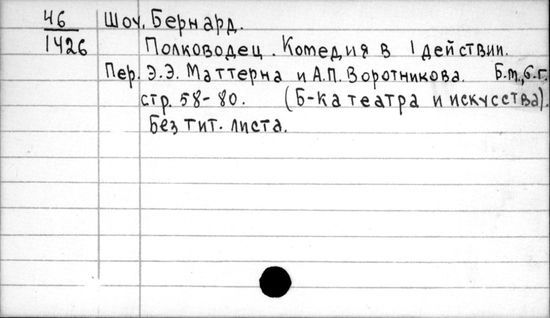 46 Шоу, Бернард.
1426 Полководец. Комедия в 1 действии.
Пер. Э.Э. Маттерна и А.П. Воротникова. Б.м., б.г.
стр. 58-80. (Б-ка театра и искусства).
Без тит. листа.